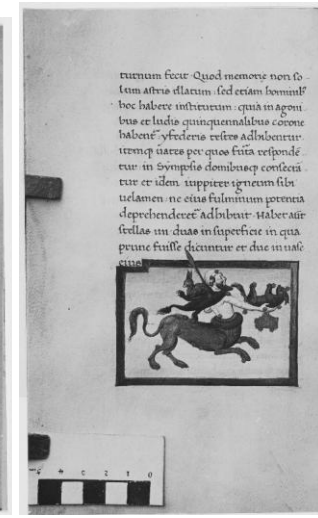 turnum fecit · Quod memorie non so
lum astris illatum · sed etiam hominib'
hoc habere institutum · quia in agoni
bus et ludis quinquennalibus corone
habent̄ · yfederis testes adhibentur ·
itemq; uates per quos futa respondē
tur in symposiis domibusq; consecra
tur et idem iuppiter igneum sibi
uelamen · ne eius fulminum potentia
deprehenderet̄ adhibuit · Habet aut̄
stellas duas in superficie in qua
prune fuisse dicuntur et due in uase
eius